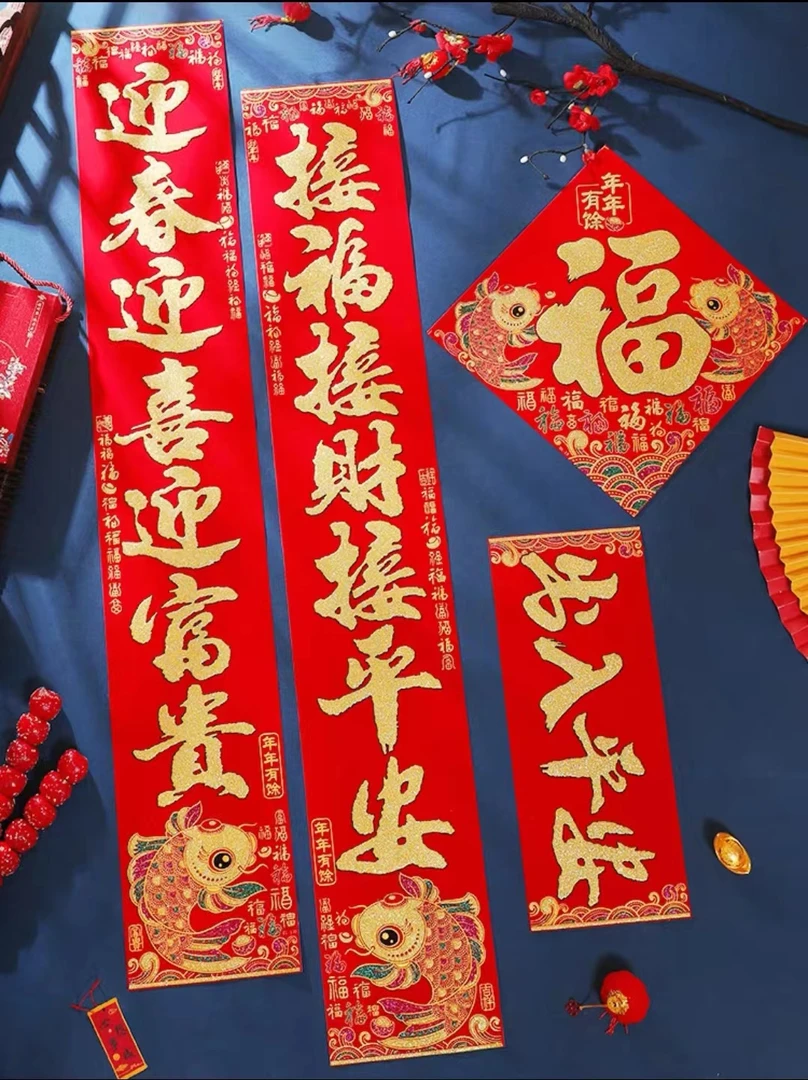 迎春迎喜迎富贵
年年有馀
接福接财接平安
年年有馀
年年有馀
福
出入平安